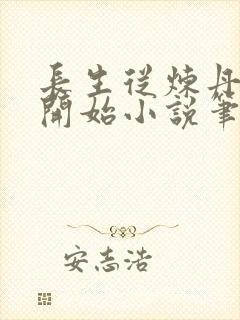 長生從煉丹
開始小說筆
安志浩